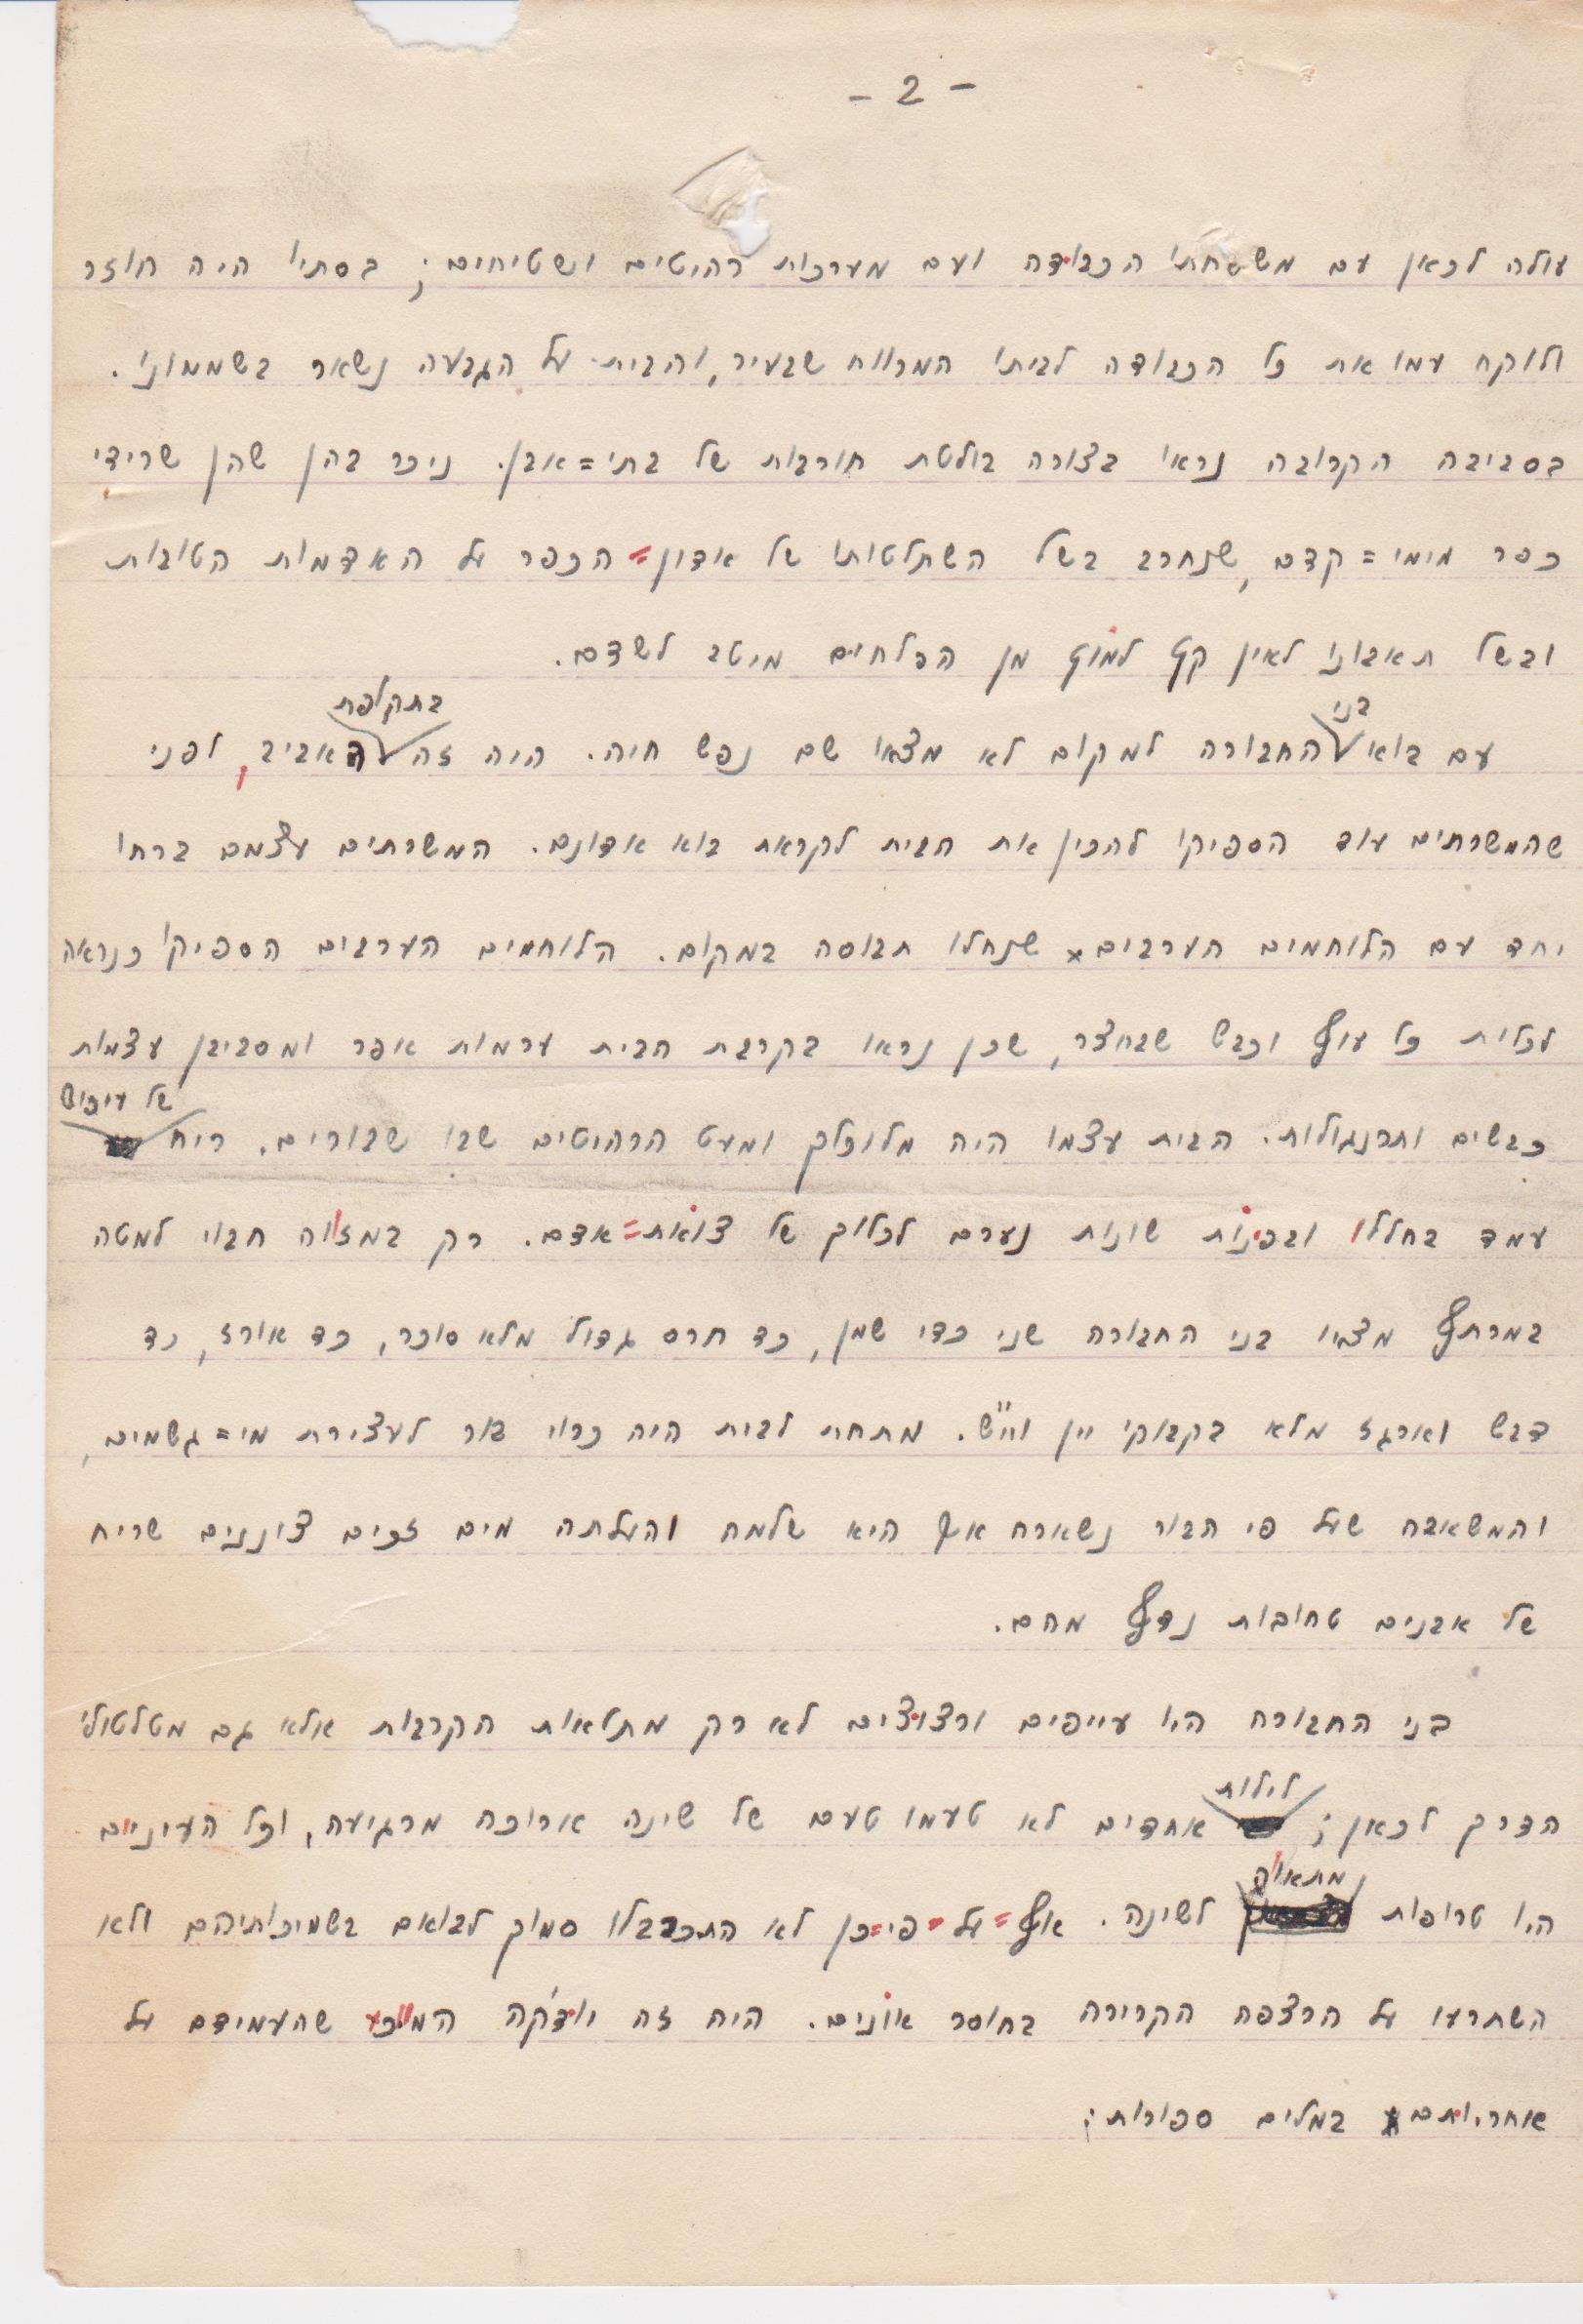 - 2 -
עולה לכאן עם משפחתו הכבודה ועם מערכות רהיטים ושטיחים; בסתיו היה חוזר
ולוקח עמו את כל הכבודה לביתו המרווח שבעיר, והבית על הגבעה נשאר בשממונו.
בסביבה הקרובה נראו בצורה בולטת חורבות של בתי=אבן. ניכר בהן שהן שרידי
כפר מימי=קדם, שנחרב בשל השתלטותו של אדון=הכפר על האדמות הטובות
ובשל תאבונו לאין קץ למוץ מן הפלחים מיטב לשדם.
עם בוא בני החבורה למקום לא מצאו שם נפש חיה. היה זה בתקופת האביב, לפני
שהמשרתים עוד הספיקו להכין את הבית לקראת בוא אדונם. המשרתים עצמם ברחו
יחד עם הלוחמים הערבים שנחלו תבוסה במקום. הלוחמים הערבים הספיקו כנראה
לכלות כל עוף וכבש שבחצר, שכן נראו בקרבת הבית ערמות אפר ומסביבן עצמות
כבשים ותרנגולות. הבית עצמו היה מלוכלך ומעט הרהיטים שבו שבורים. ריח של עיפוש
עמד בחללו ובפינות שונות נערם לכלוך של צואת=אדם. רק במזווה חבוי למטה
במרתף מצאו בני החבורה שני כדי שמן, כד חרס גדול מלא סוכר, כד אורז, כד
דבש וארגז מלא בקבוקי יין ויי"ש. מתחת לבית היה כרוי בור לעצירת מי=גשמים,
והמשאבה שעל פי הבור נשארה אף היא שלמה והעלתה מים זכים צוננים שריח
של אבנים טחובות נדף מהם.
בני החבורה היו עייפים ורצוצים לא רק מתלאות הקרבות אלא גם מטלטולי
הדרך לכאן; לילות אחדים לא טעמו טעם של שינה ארוכה מרגיעה, וכל העיניים
היו טרופות מתאווה לשינה. אף=על=פי=כן לא התכרבלו סמוך לבואם בשמיכותיהם ולא
השתרעו על הרצפה הקרירה בחוסר אונים. היה זה יודקה המ"כ שהעמידם על
אחריותם במלים ספורות: